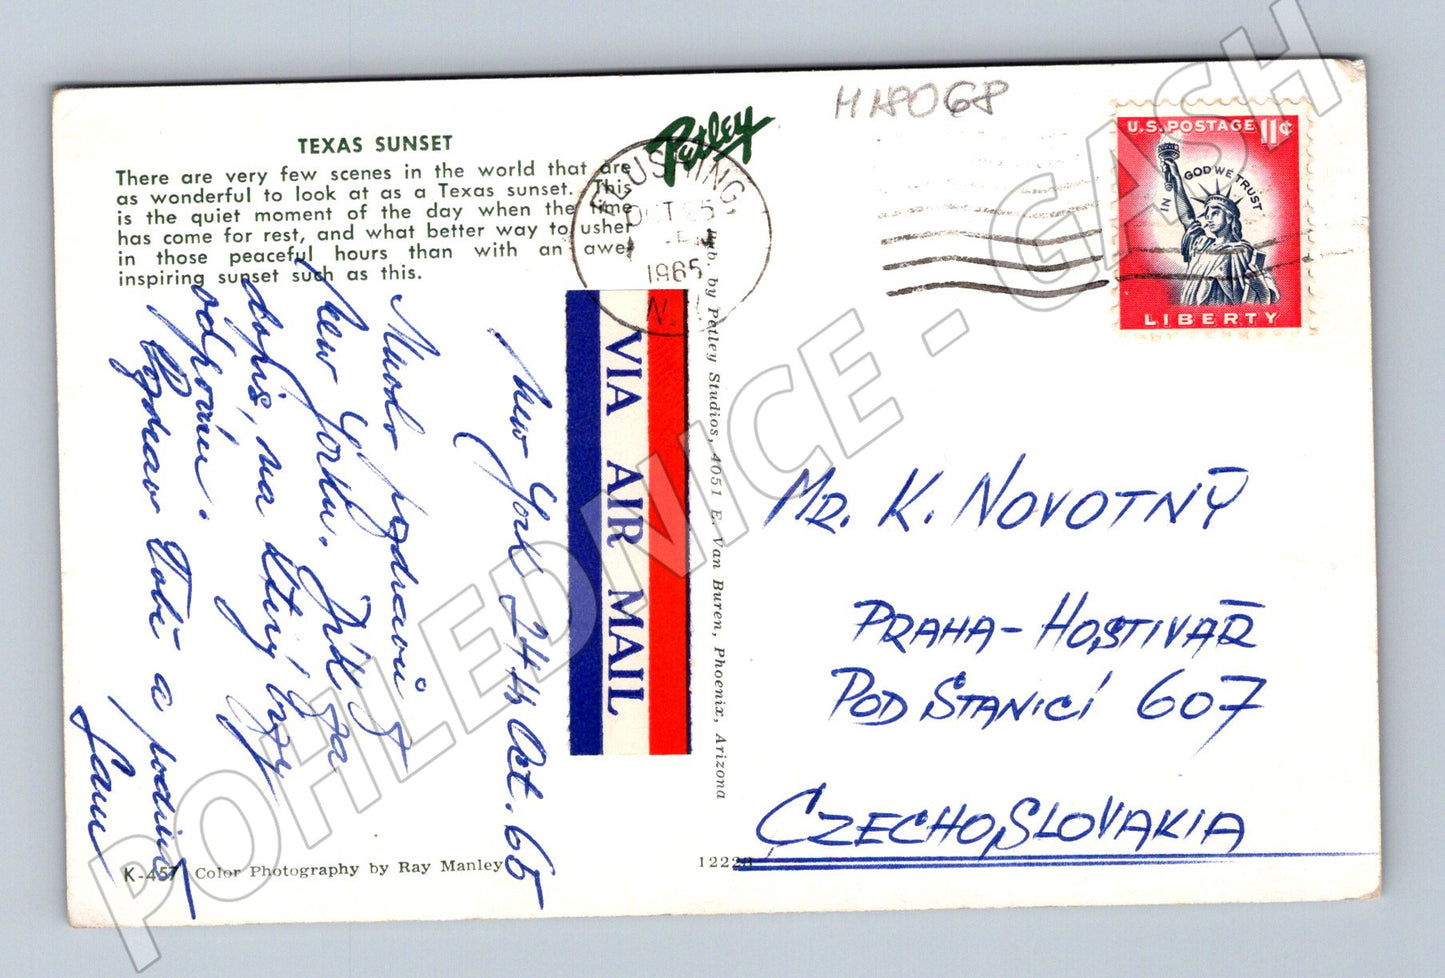 H18068
TEXAS SUNSET
There are very few scenes in the world that are
as wonderful to look at as a Texas sunset. This
is the quiet moment of the day when the time
has come for rest, and what better way to usher
in those peaceful hours than with an awe-
inspiring sunset such as this.
Petley
FLUSHING,
OCT 25
1965
N.Y.
U.S. POSTAGE 11¢
IN GOD WE TRUST
LIBERTY
VIA AIR MAIL
Pub. by Petley Studios, 4051 E. Van Buren, Phoenix, Arizona
New York 24th Oct. 65
Mnoho pozdravů z
New Yorku. Dík za
dopis, na který brzy
odpovím.
Pozdrav Tobě a rodině
MR. K. NOVOTNÝ
PRAHA-HOSTIVAŘ
POD STANICÍ 607
CZECHOSLOVAKIA
K-457 Color Photography by Ray Manley
12228
POHLEDNICE - GASH